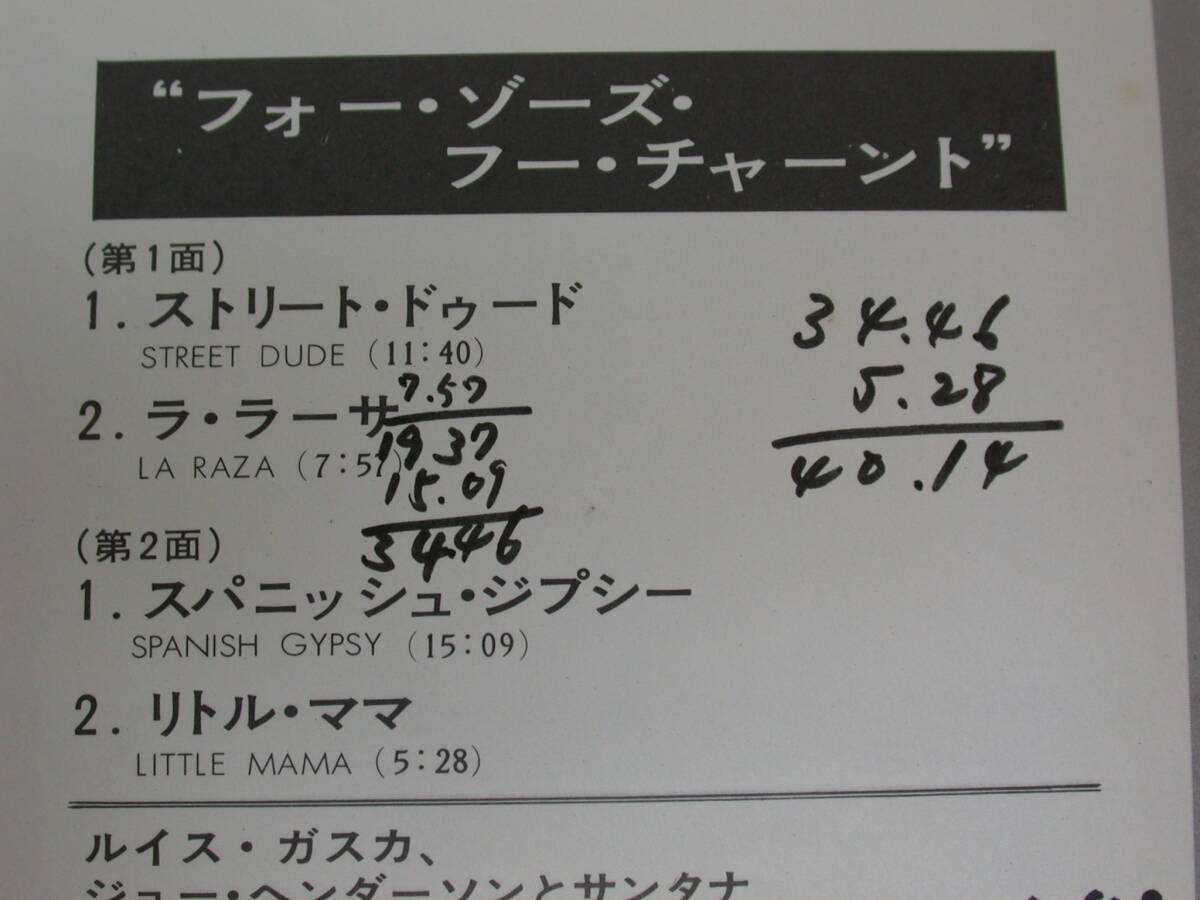 “フォー・ゾーズ・
フー・チャーント”
(第1面)
1. ストリート・ドゥード
STREET DUDE (11:40)
7.57
2. ラ・ラーサ
19 37
LA RAZA (7:57)
15.09
34.46
34.46
5.28
40.14
(第2面)
1. スパニッシュ・ジプシー
SPANISH GYPSY (15:09)
2. リトル・ママ
LITTLE MAMA (5:28)
ルイス・ガスカ、
ジョー・ヘンダーソンとサンタナ